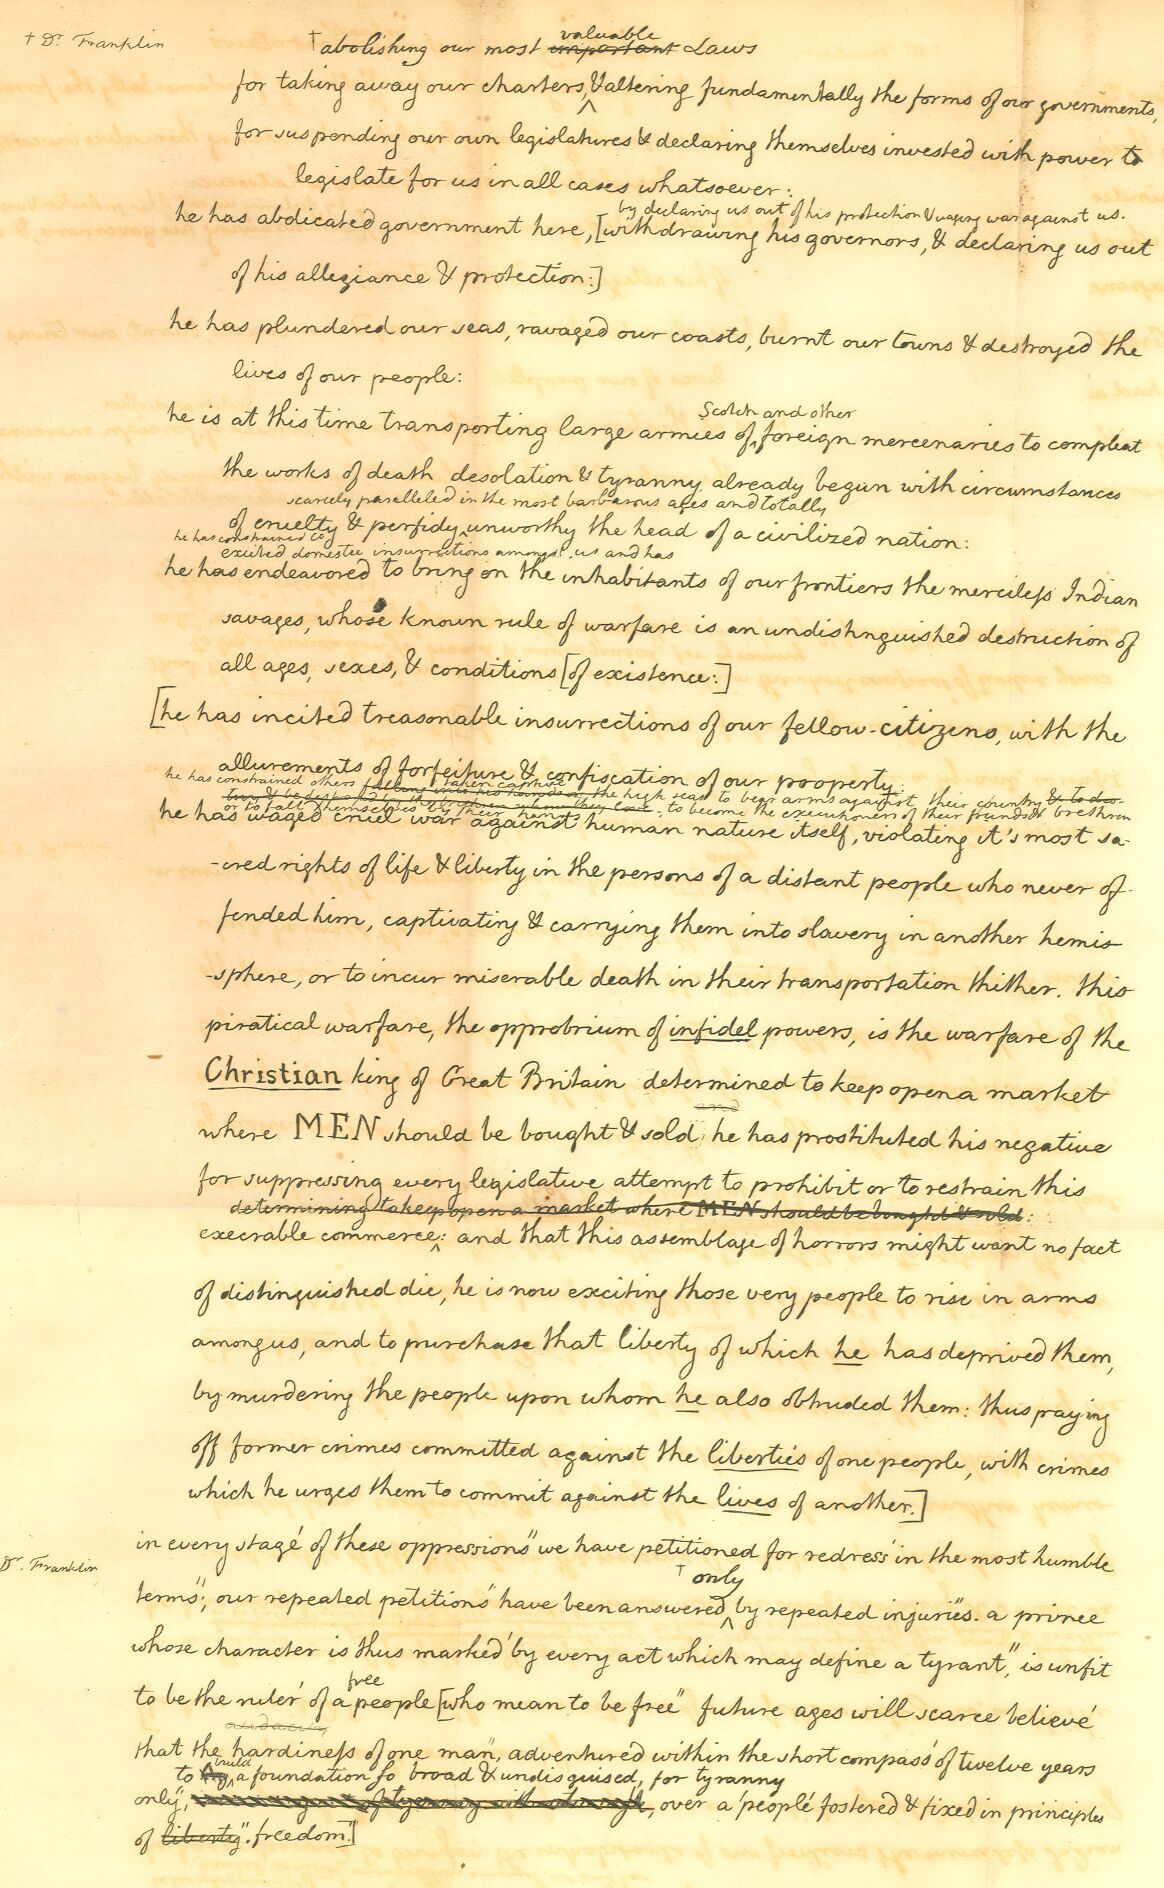 † Dr. Franklin
valuable
†abolishing our most important Laws
for taking away our charters, & altering fundamentally the forms of our governments,
for suspending our own legislatures & declaring themselves invested with power to
legislate for us in all cases whatsoever:
by declaring us out of his protection & waging war against us.
he has abdicated government here, [withdrawing his governors, & declaring us out
of his allegiance & protection:]
he has plundered our seas, ravaged our coasts, burnt our towns & destroyed the
lives of our people:
Scotch and other
he is at this time transporting large armies of foreign mercenaries to compleat
the works of death desolation & tyranny already begun with circumstances
scarcely paralleled in the most barbarous ages and totally
of cruelty & perfidy unworthy the head of a civilized nation:
he has constrained
excited domestic insurrections amongst us and has
he has endeavored to bring on the inhabitants of our frontiers the merciless Indian
savages, whose known rule of warfare is an undistinguished destruction of
all ages, sexes, & conditions [of existence:]
[he has incited treasonable insurrections of our fellow-citizens, with the
allurements of forfeiture & confiscation of our property.
he has constrained others taken captive on the high seas to bear arms against their country
or to fall themselves by their hands. to become the executioners of their friends & brethren
he has waged cruel war against human nature itself, violating it's most sa-
-cred rights of life & liberty in the persons of a distant people who never of-
fended him, captivating & carrying them into slavery in another hemis-
-sphere, or to incur miserable death in their transportation thither. this
piratical warfare, the opprobrium of infidel powers, is the warfare of the
Christian king of Great Britain determined to keep open a market
and
where MEN should be bought & sold he has prostituted his negative
for suppressing every legislative attempt to prohibit or to restrain this
determining to keep open a market where MEN should be bought & sold:
execrable commerce: and that this assemblage of horrors might want no fact
of distinguished die, he is now exciting those very people to rise in arms
among us, and to purchase that liberty of which he has deprived them,
by murdering the people upon whom he also obtruded them: thus paying
off former crimes committed against the liberties of one people, with crimes
which he urges them to commit against the lives of another.]
in every stage of these oppressions" we have petitioned for redress in the most humble
Dr. Franklin
† only
terms"; our repeated petitions" have been answered by repeated injuries. a prince
whose character is thus marked by every act which may define a tyrant", is unfit
free
to be the ruler of a people [who mean to be free" future ages will scarce believe
audacity
that the hardiness of one man", adventured within the short compass of twelve years
build
to a foundation so broad & undisguised, for tyranny
only", over a people fostered & fixed in principles
of liberty". freedom.]